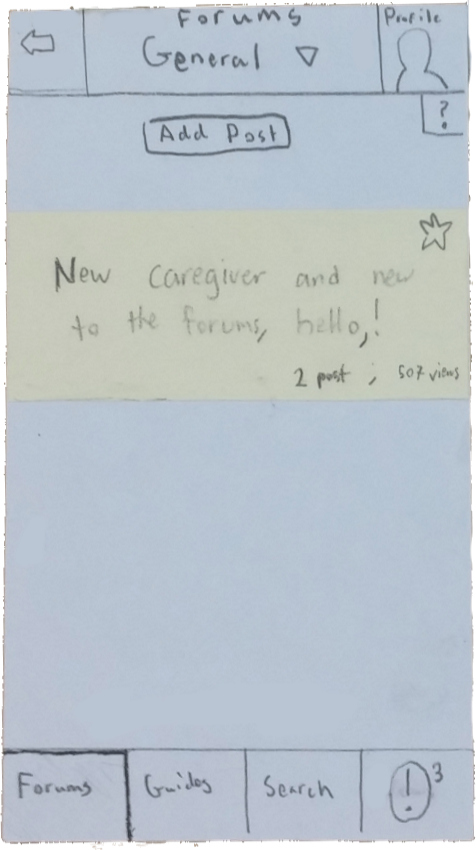 Forums
General
Profile
?
Add Post
New caregiver and new
to the forums, hello,!
2 post ; 507 views
Forums
Guides
Search
! 3